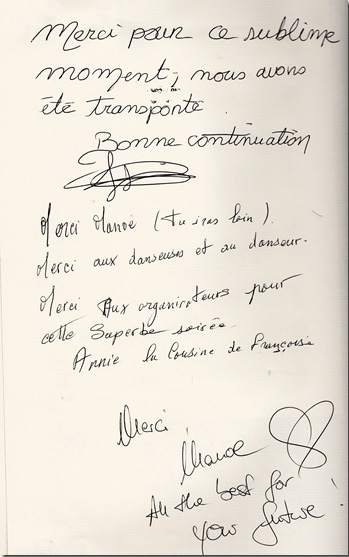 Merci pour ce sublime
moment, nous avons
été transporté
Bonne continuation
Merci Manoé (tu iras loin).
Merci aux danseuses et au danseur.
Merci Aux organisateurs pour
cette Superbe soirée
Annie la Cousine de Françoise
Merci
All the best for
your future!